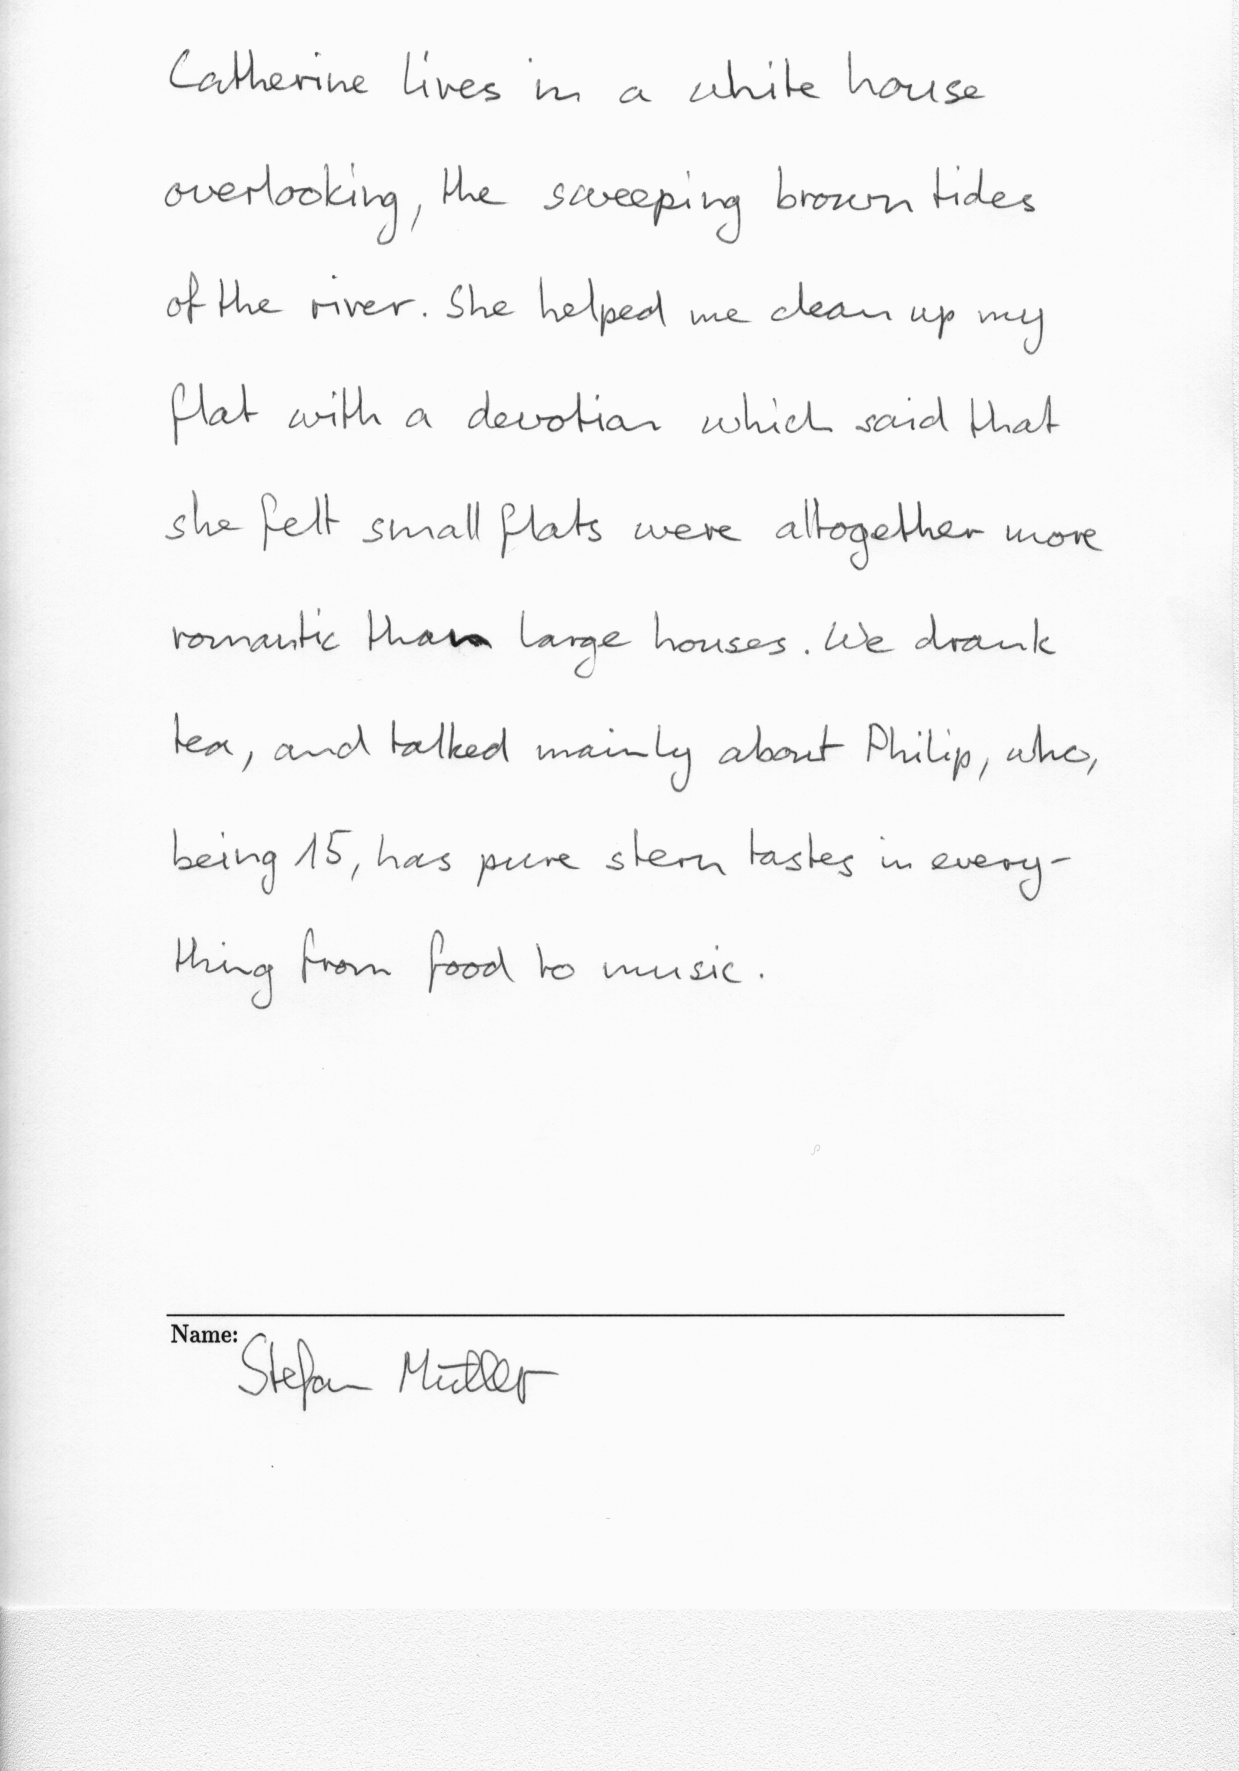 Catherine lives in a white house
overlooking, the sweeping brown tides
of the river. She helped me clean up my
flat with a devotion which said that
she felt small flats were altogether more
romantic than large houses. We drank
tea, and talked mainly about Philip, who,
being 15, has pure stern tastes in every-
thing from food to music.
Name:
Stefan Müller